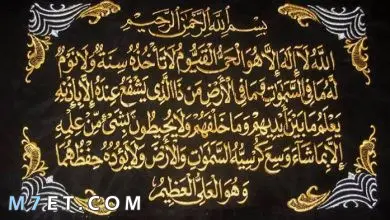 بِسْمِ اللَّهِ الرَّحْمَنِ الرَّحِيمِ
اللَّهُ لَا إِلَهَ إِلَّا هُوَ الْحَيُّ الْقَيُّومُ لَا تَأْخُذُهُ سِنَةٌ وَلَا نَوْمٌ
لَهُ مَا فِي السَّمَوَاتِ وَمَا فِي الْأَرْضِ مَنْ ذَا الَّذِي يَشْفَعُ عِنْدَهُ إِلَّا بِإِذْنِهِ
يَعْلَمُ مَا بَيْنَ أَيْدِيهِمْ وَمَا خَلْفَهُمْ وَلَا يُحِيطُونَ بِشَيْءٍ مِنْ عِلْمِهِ
إِلَّا بِمَا شَاءَ وَسِعَ كُرْسِيُّهُ السَّمَوَاتِ وَالْأَرْضَ وَلَا يَؤُدُهُ حِفْظُهُمَا
وَهُوَ الْعَلِيُّ الْعَظِيمُ
M7ET.COM